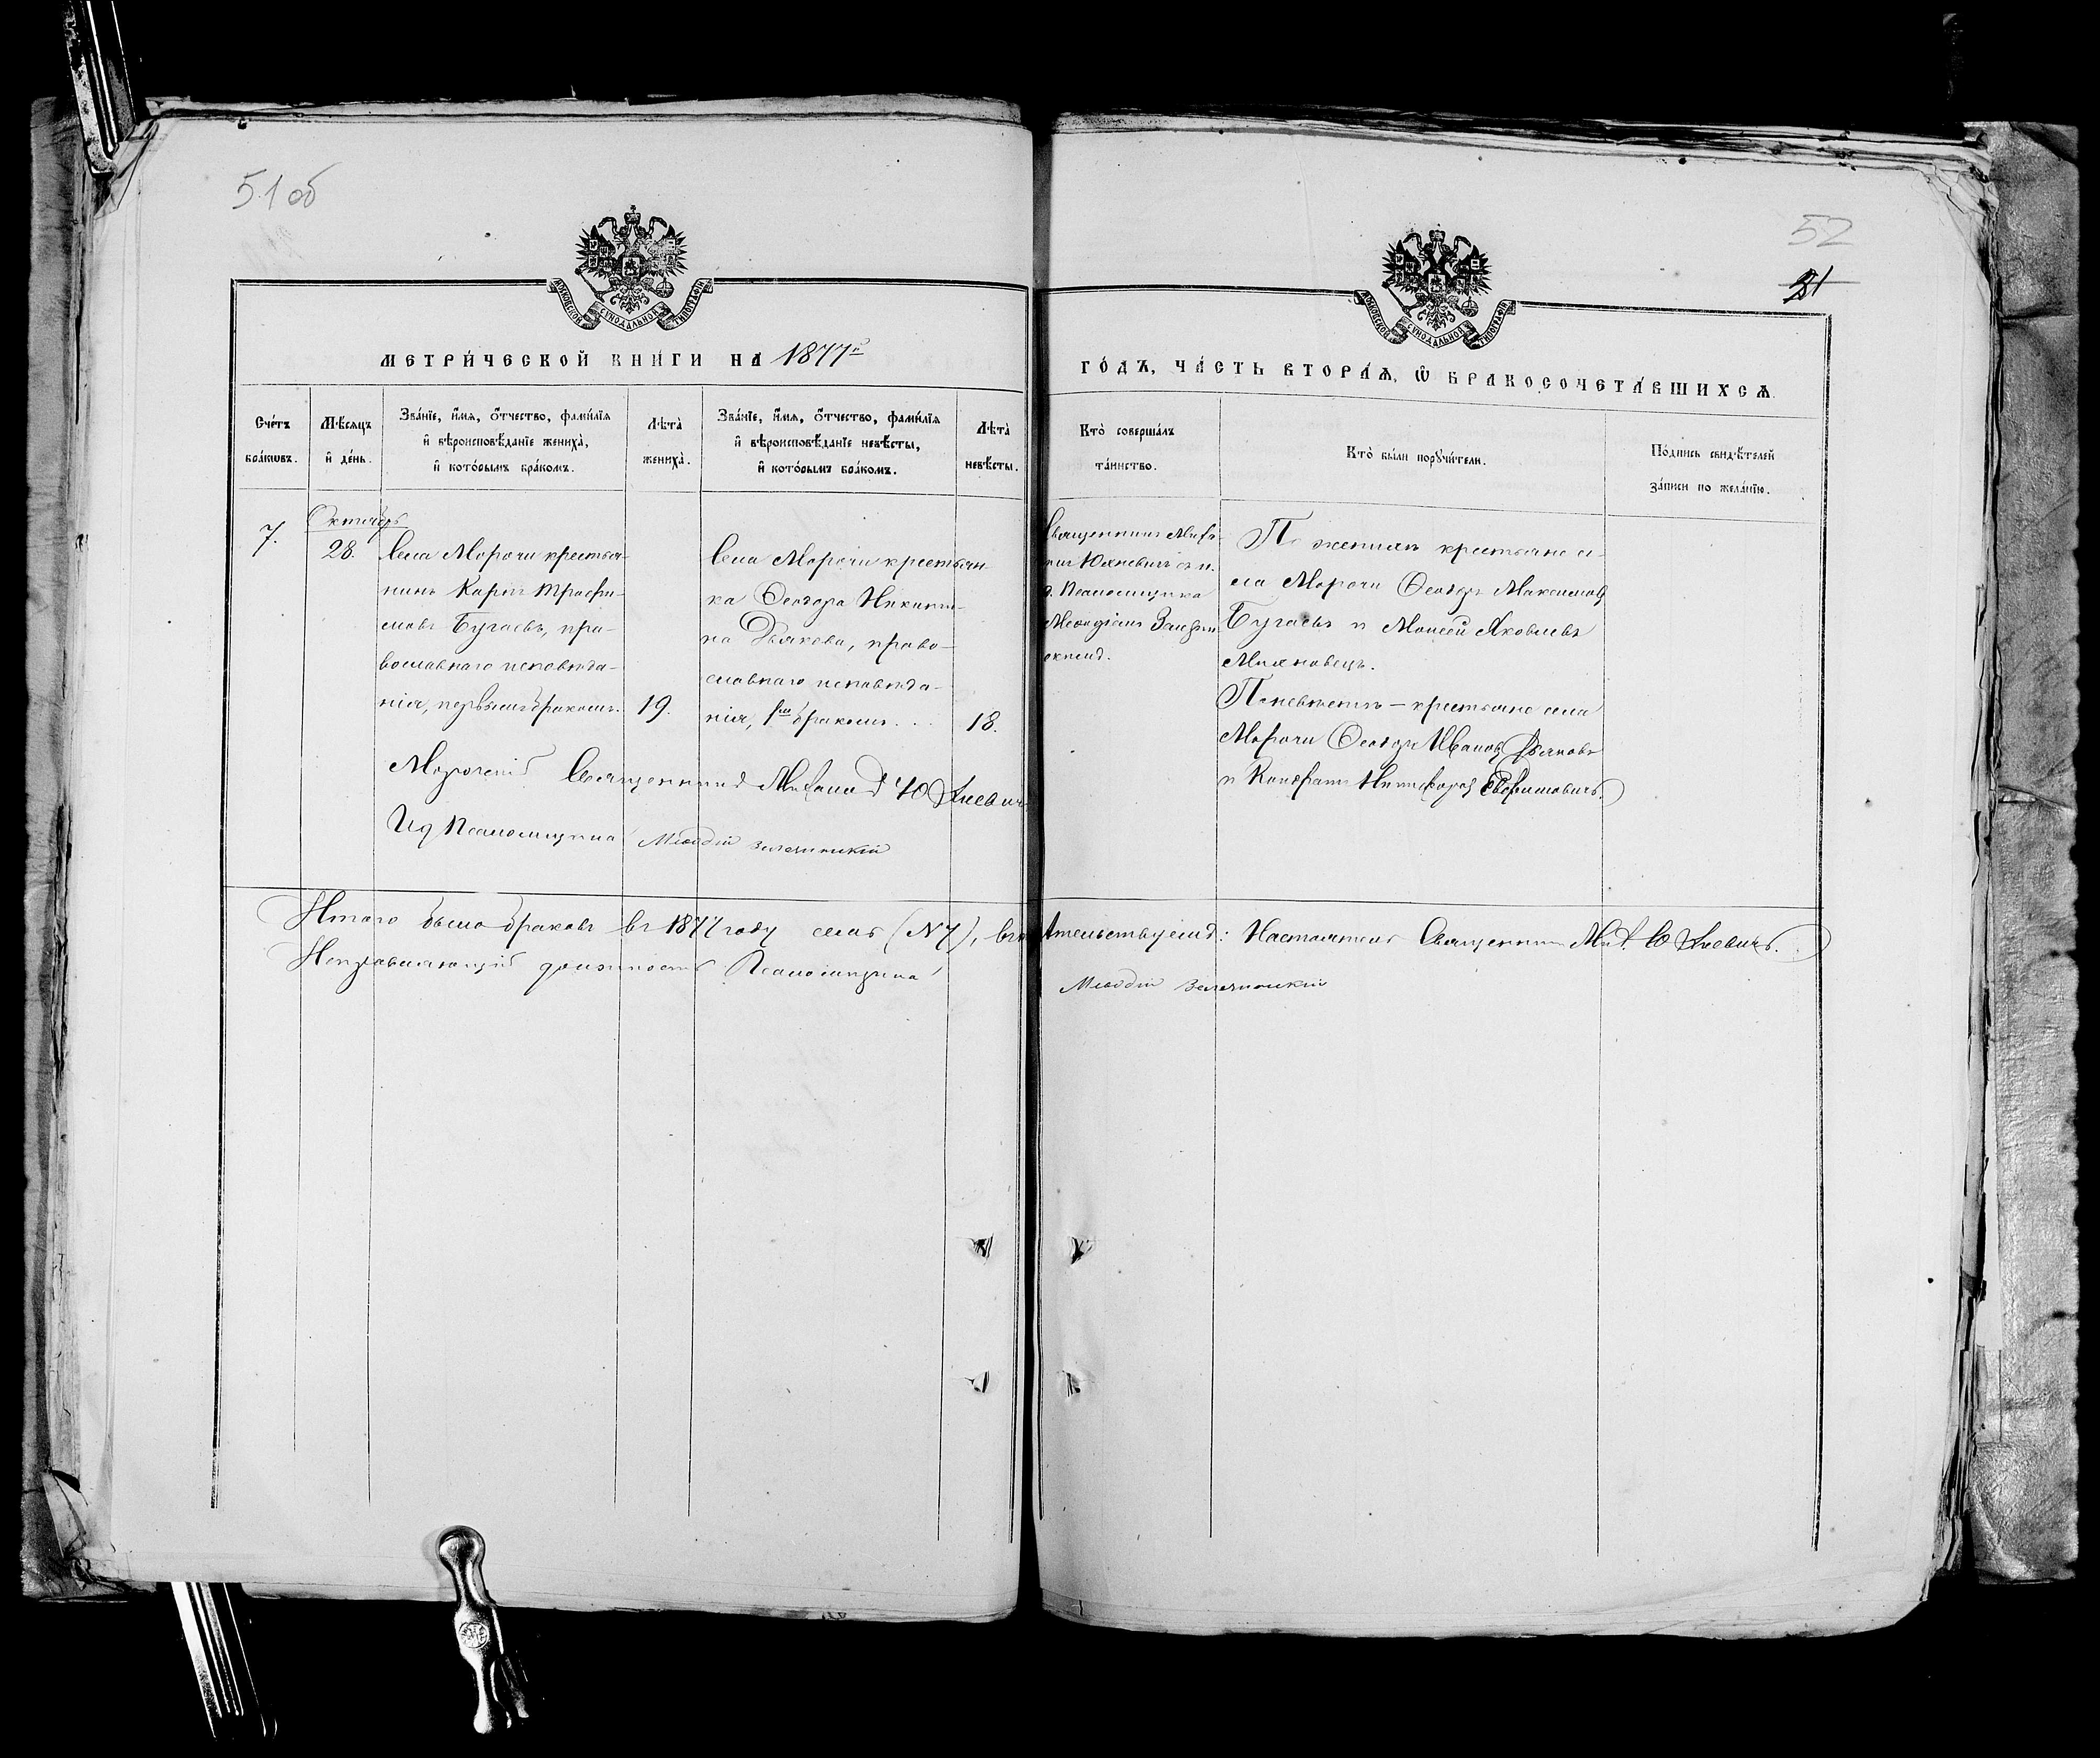 51 об
52
31
МОСКОВСКОЙ СѴНОДАЛЬНОЙ ТИПОГРАФІИ
МОСКОВСКОЙ СѴНОДАЛЬНОЙ ТИПОГРАФІИ
МЕТРИ́ЧЕСКОЙ КНИ́ГИ НА 1877й
ГО́ДЪ, ЧА́СТЬ ВТОРА́Ѧ, Ѽ БРАКОСОЧЕТА́ВШИХСѦ.
Сче́тъ
бра́кѡвъ.
Мѣ́сяцъ
и҆ де́нь.
Зва́нїе, и҆́мя, ѻ҆́тчество, фами́лїя
и҆ вѣроисповѣ́данїе жениха̀,
и҆ кото́рымъ бра́комъ.
Лѣта̀
жениха̀.
Зва́нїе, и҆́мя, ѻ҆́тчество, фами́лїя
и҆ вѣроисповѣ́данїе невѣ́сты,
и҆ кото́рымъ бра́комъ.
Лѣта̀
невѣ́сты.
Кто̀ соверша́лъ
та́инство.
Кто̀ бы́ли порꙋчи́тели.
По́дпись свидѣ́телей
за́писи по жела́нїю.
7.
Октябрь
28.
Села Морочи крестья-
нинъ Карпъ Трофи-
мовъ Бугаевъ, пра-
вославнаго исповѣда-
нія, первымъ бракомъ.
19.
Села Морочи крестьян-
ка Ѳеодора Никити-
на Дьякова, право-
славнаго исповѣда-
нія, 1мъ бракомъ...
18.
Священникъ Миха-
илъ Юхневичъ съ и.
д. Псаломщика
Меѳодіемъ
По женихѣ крестьяне се-
ла Морочи Ѳеодоръ Максимовъ
Бугаевъ и Моисей Яковлевъ
Михновецъ.
По невѣстѣ – крестьяне села
Морочи Ѳеодоръ Ивановъ Дьяковъ
и Кондратъ Никифоровъ Евфимовичъ.
Морочскій Священникъ Михаилъ Юхневичъ
И д Псаломщика Меѳодій
Итого было браковъ въ 1877 году семь (N 7), въ чемъ
свидѣтельствуемъ: Настоятель Священникъ Мих. Юхневичъ.
Исправляющій должность Псаломщика
Меѳодій